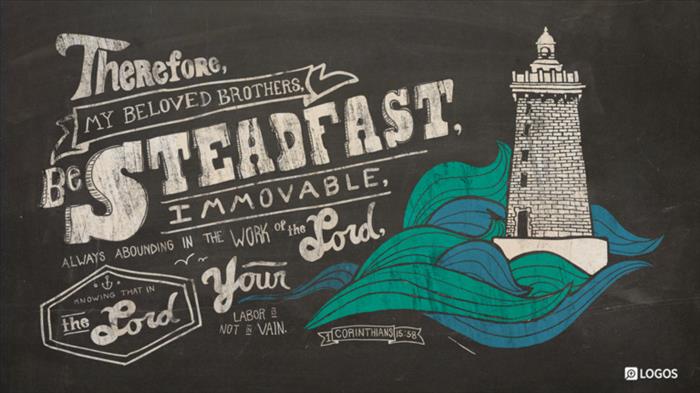 Therefore,
MY BELOVED BROTHERS,
Be STEADFAST,
IMMOVABLE,
ALWAYS ABOUNDING IN THE WORK of the Lord,
KNOWING THAT IN
the Lord
Your
LABOR is
NOT in VAIN.
1 CORINTHIANS 15:58
LOGOS